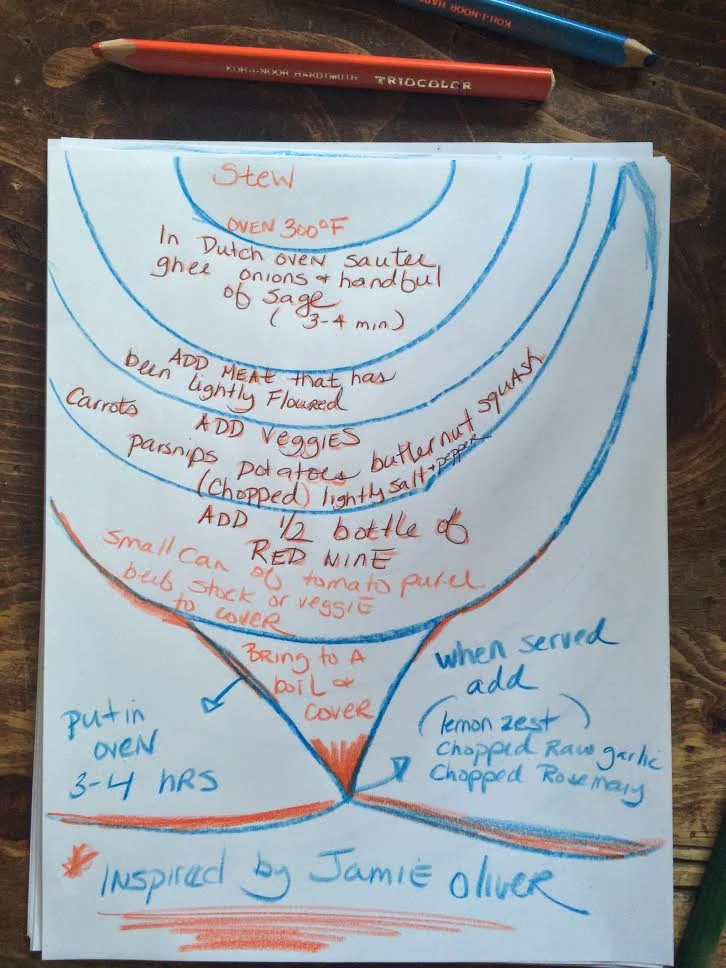 KOH-I-NOOR HARDTMUTH TRIOCOLOR
KOH-I-NOOR HARD
Stew
OVEN 300°F
In Dutch oven sautee
ghee onions + handful
of sage
(3-4 min)
ADD MEAT that has
been lightly Floured
Carrots ADD VEGGIES
parsnips potatoes butternut squash
(Chopped) lightly salt + pepper
ADD 1/2 bottle of
RED WINE
small can of tomato puree
beef stock or veggie
to cover
BRING to A
boil +
COVER
put in
OVEN
3-4 HRS
when served
add
(lemon zest)
Chopped Raw garlic
Chopped Rosemary
* INSPIRED by JAMIE OLIVER